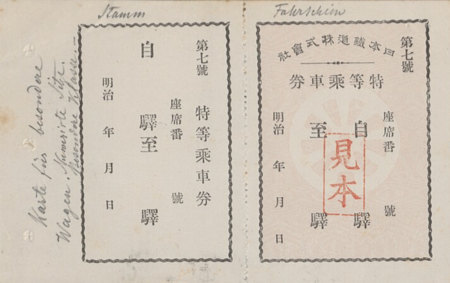 Stamm
第七號
特等乘車券
座席番 號
自 驛至 驛
明治 年 月 日
Fahrschein
第七號
日本鐵道株式會社
特等乘車券
座席番 號
自 驛
至 驛
明治 年 月 日
見本
Karte für besondere
Wagen